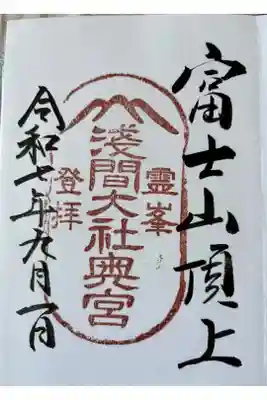 富士山頂上
霊峯
淺間大社奥宮
登拝
令和七年九月一日